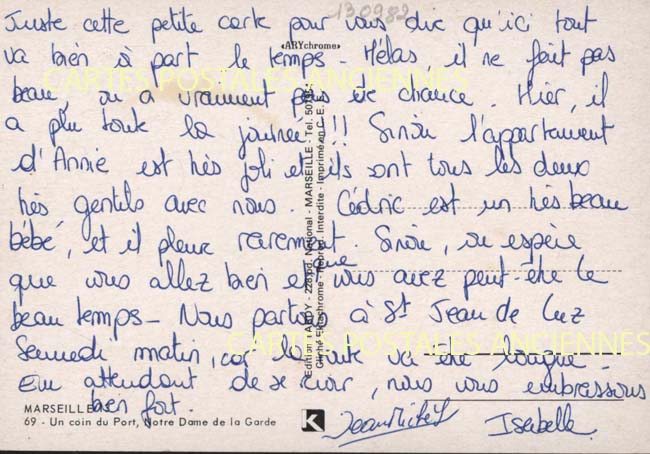 130982
Juste cette petite carte pour vous dire qu'ici tout
va bien à part le temps. Hélas, il ne fait pas
«ARYchrome»
CARTES POSTALES ANCIENNES
beau, on a vraiment pas de chance. Hier, il
a plu toute la journée !!! Sinon l'appartement
d'Annie est très joli et ils sont tous les deux
très gentils avec nous. Cédric est un très beau
bébé, et il pleure rarement. Sinon, on espère
que vous allez bien et que vous avez peut-être le
beau temps - Nous partons à St Jean de Luz
CARTES POSTALES ANCIENNES
Samedi matin, car la route va être longue.
En attendant de se voir, nous vous embrassons
bien fort.
Isabelle
MARSEILLE
69 - Un coin du Port, Notre Dame de la Garde
K
Edition ARY - National - MARSEILLE - Tél.
Interdite - Imprimé en C.E.E.